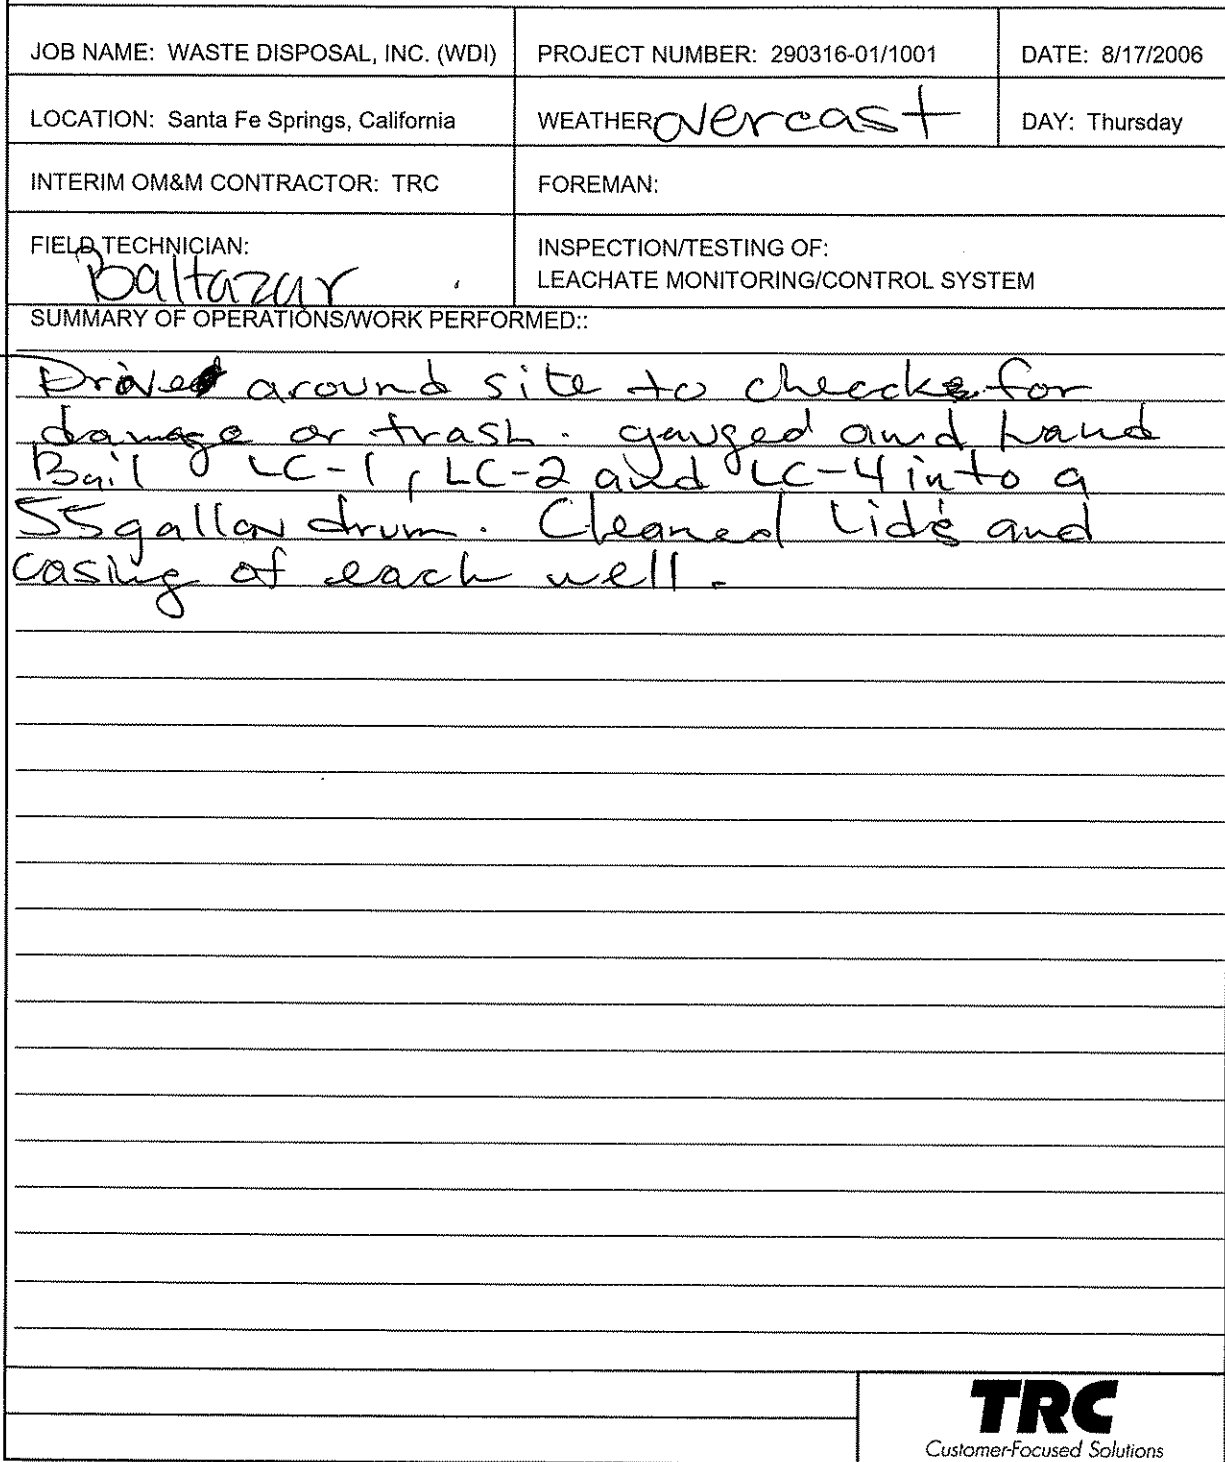 JOB NAME: WASTE DISPOSAL, INC. (WDI)
PROJECT NUMBER: 290316-01/1001
DATE: 8/17/2006
LOCATION: Santa Fe Springs, California
WEATHER: overcast
DAY: Thursday
INTERIM OM&M CONTRACTOR: TRC
FOREMAN:
FIELD TECHNICIAN:
Baltazar
INSPECTION/TESTING OF:
LEACHATE MONITORING/CONTROL SYSTEM
SUMMARY OF OPERATIONS/WORK PERFORMED::
around site to check for
damage or trash. gauged and hand
Bail LC-1, LC-2 and LC-4 into a
55 gallon drum. Cleaned Lids and
casing of each well.
TRC
Customer-Focused Solutions